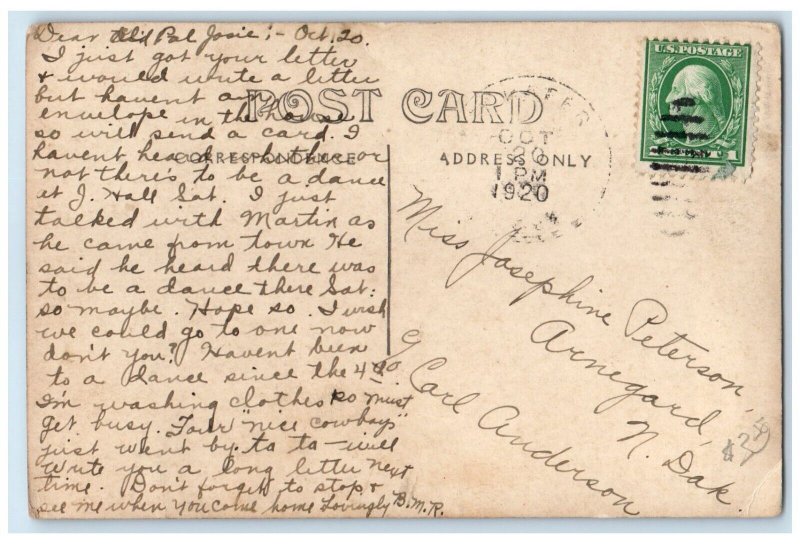 Dear Old Pal Josie:- Oct. 20.
I just got your letter
& would write a letter
but havent an
envelope in the house
so will send a card. I
havent heard whether or
not there's to be a dance
at J. Hall Sat. I just
talked with Martin as
he came from town He
said he heard there was
to be a dance there Sat.
so maybe. Hope so. I wish
we could go to one now
don't you? Havent been
to a dance since the 4th
I'm washing clothes so must
get busy. Four "nice cowboys"
just went by. ta ta - will
write you a long letter next
time. Don't forget to stop &
see me when you come home Lovingly B.M.R.
POST CARD
CORRESPONDENCE
ADDRESS ONLY
OCT
20
1 PM
1920
U.S. POSTAGE
1
Miss Josephine Peterson,
Arnegard,
N. Dak.
c/o Carl Anderson